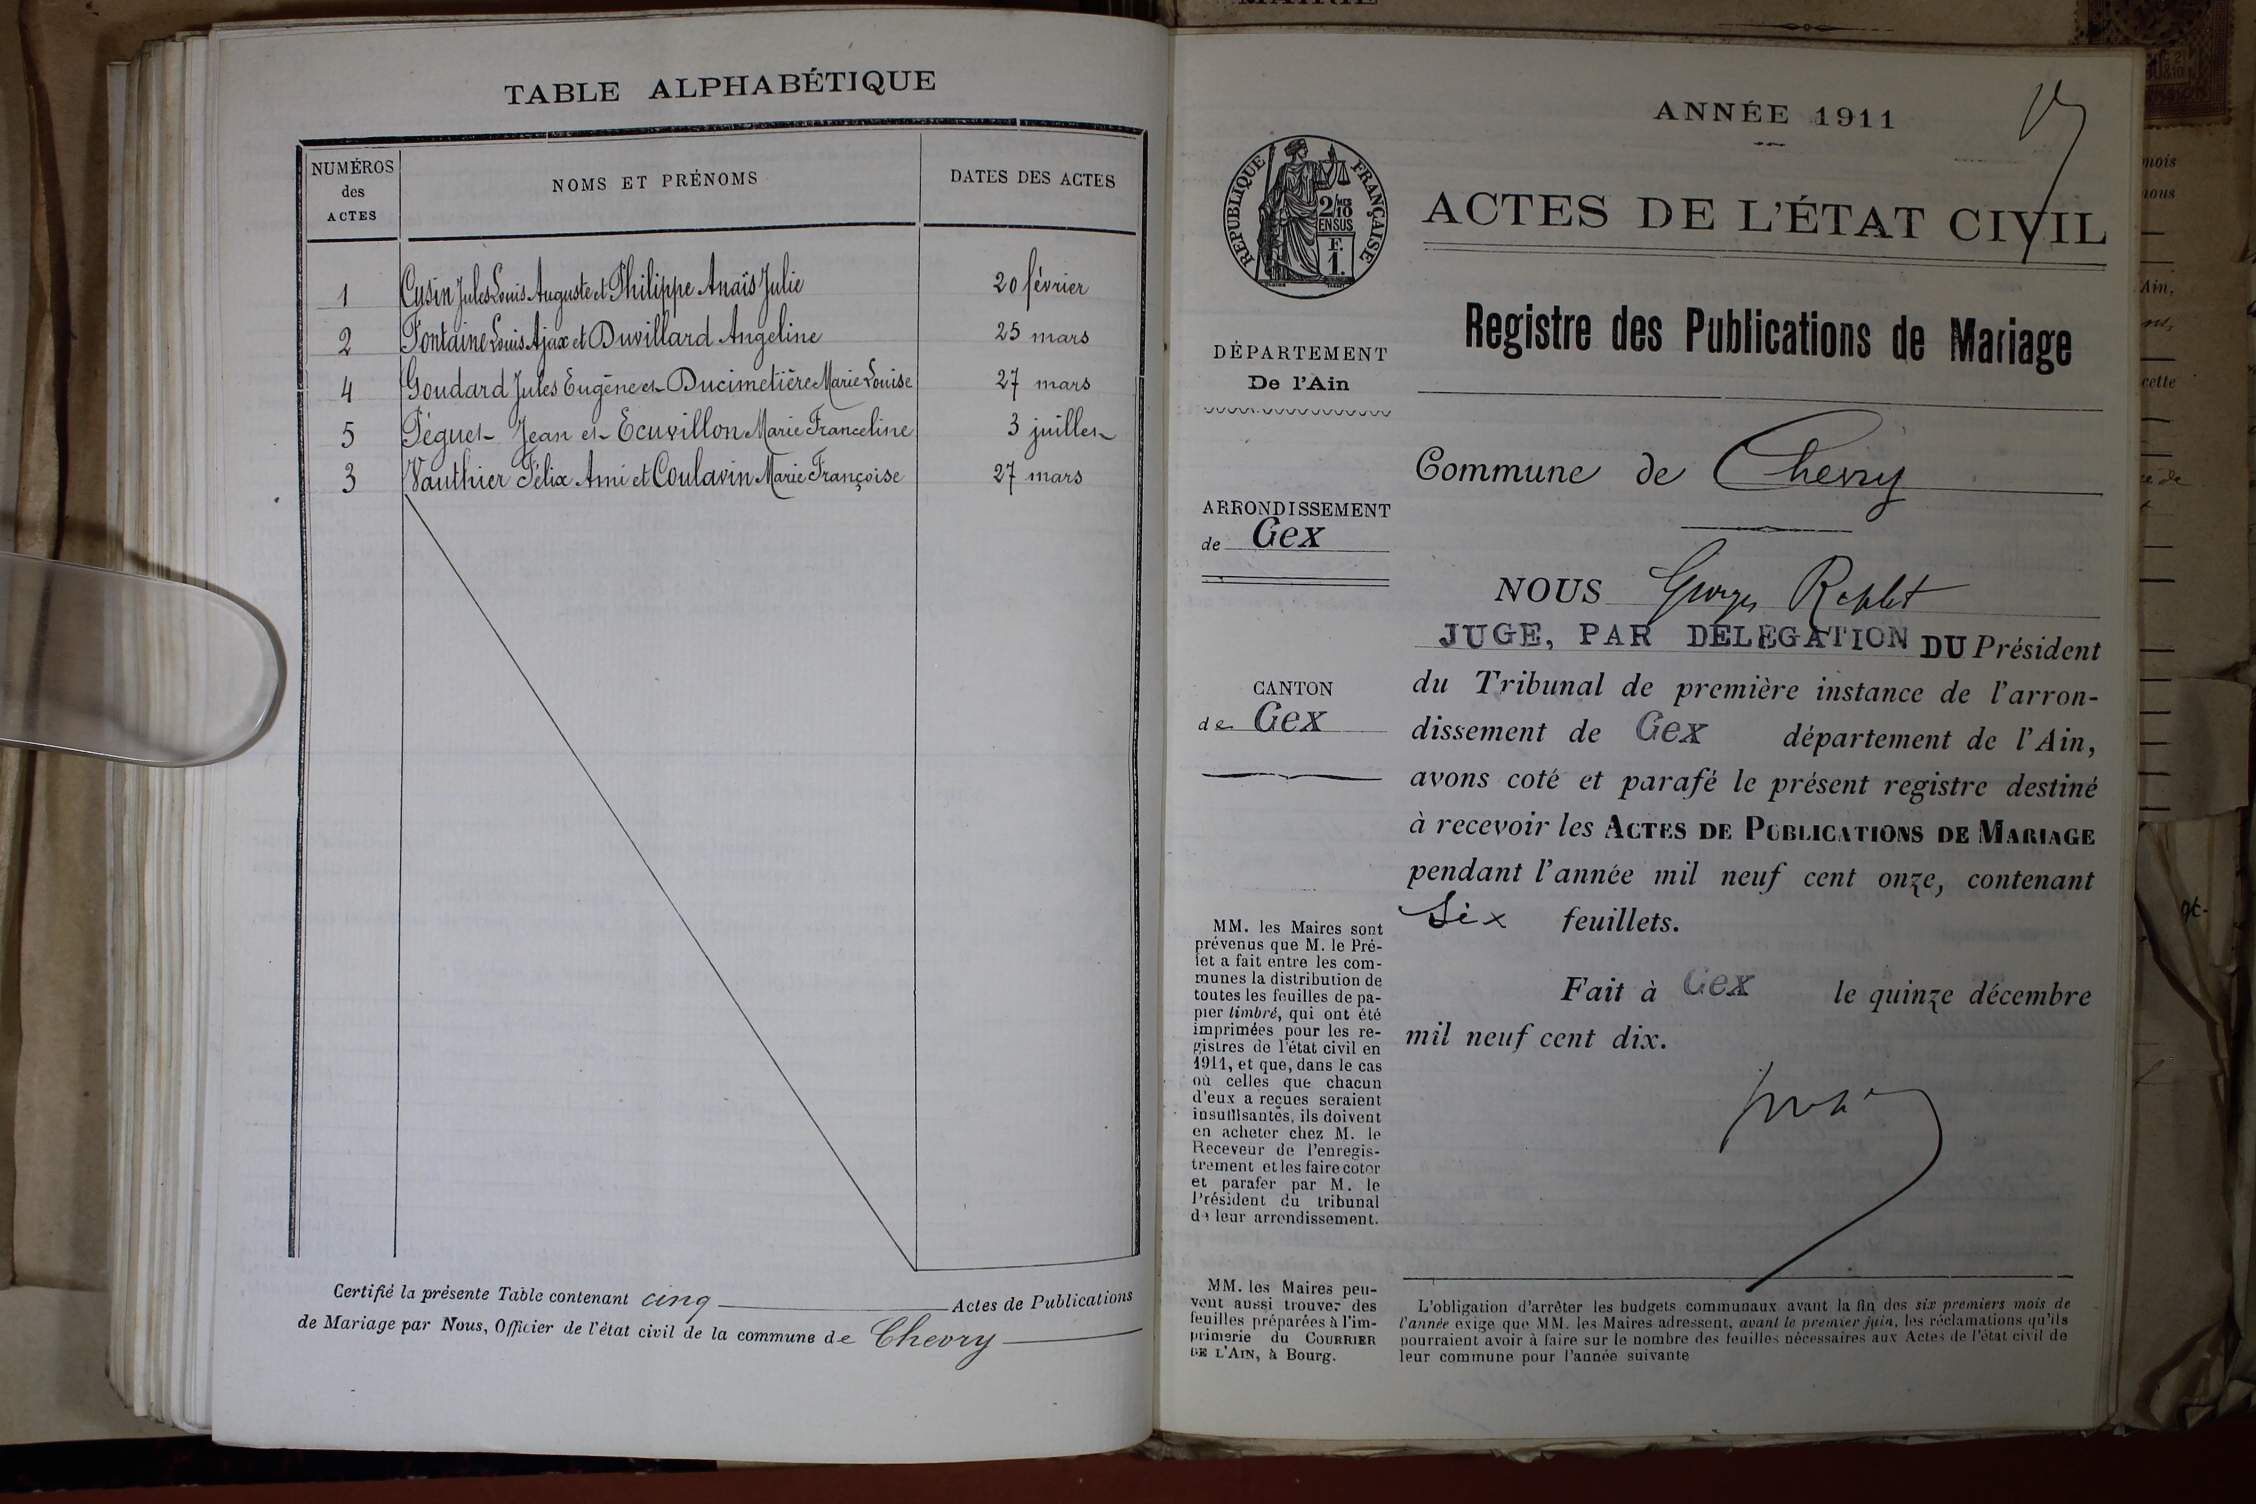 TABLE ALPHABÉTIQUE
NUMÉROS des ACTES
NOMS ET PRÉNOMS
DATES DES ACTES
1 Cusin Jules Louis Auguste et Philippe Anaïs Julie 20 février
2 Fontaine Louis Ajax et Duvillard Angeline 25 mars
4 Goudard Jules Eugène et Ducimetière Marie Louise 27 mars
5 Péguet Jean et Ecuvillon Marie Franceline 3 juillet
3 Vauthier Félix Ami et Coulavin Marie Françoise 27 mars
Certifié la présente Table contenant cinq Actes de Publications
de Mariage par Nous, Officier de l'état civil de la commune de Chevry
ANNÉE 1911
RÉPUBLIQUE FRANÇAISE
2/10
EN SUS
F.
1.
ACTES DE L'ÉTAT CIVIL
Registre des Publications de Mariage
DÉPARTEMENT
De l'Ain
ARRONDISSEMENT
de Gex
CANTON
de Gex
MM. les Maires sont
prévenus que M. le Pré-
fet a fait entre les com-
munes la distribution de
toutes les feuilles de pa-
pier timbré, qui ont été
imprimées pour les re-
gistres de l'état civil en
1911, et que, dans le cas
où celles que chacun
d'eux a reçues seraient
insuffisantes, ils doivent
en acheter chez M. le
Receveur de l'enregis-
trement et les faire coter
et parafer par M. le
Président du tribunal
de leur arrondissement.
MM. les Maires peu-
vent aussi trouver des
feuilles préparées à l'im-
primerie du COURRIER
DE L'AIN, à Bourg.
Commune de Chevry
NOUS Georges
JUGE, PAR DELEGATION DU Président
du Tribunal de première instance de l'arron-
dissement de Gex département de l'Ain,
avons coté et parafé le présent registre destiné
à recevoir les ACTES DE PUBLICATIONS DE MARIAGE
pendant l'année mil neuf cent onze, contenant
Six feuillets.
Fait à Gex le quinze décembre
mil neuf cent dix.
L'obligation d'arrêter les budgets communaux avant la fin des six premiers mois de
l'année exige que MM. les Maires adressent, avant le premier juin, les réclamations qu'ils
pourraient avoir à faire sur le nombre des feuilles nécessaires aux Actes de l'état civil de
leur commune pour l'année suivante